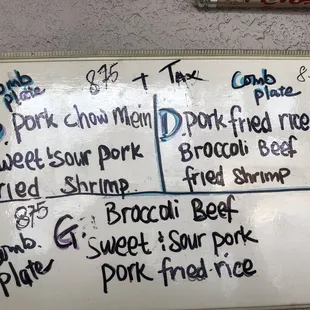 Comb plate 875 + Tax Comb plate 8
pork chow Mein
sweet & sour pork
fried shrimp
D. pork fried rice
Broccoli Beef
fried shrimp
875
Comb. plate
G. Broccoli Beef
sweet & sour pork
pork fried rice